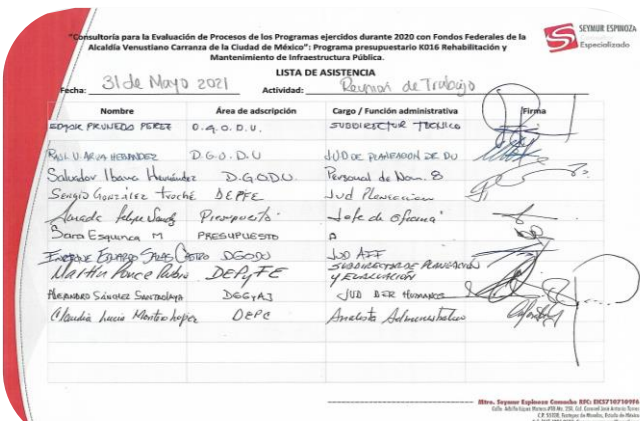 SEYMUR ESPINOZA
Especializado
"Consultoría para la Evaluación de Procesos de los Programas ejercidos durante 2020 con Fondos Federales de la
Alcaldía Venustiano Carranza de la Ciudad de México": Programa presupuestario K016 Rehabilitación y
Mantenimiento de Infraestructura Pública.
LISTA DE ASISTENCIA
Fecha: 31 de Mayo 2021 Actividad: Reunion de Trabajo
Nombre Área de adscripción Cargo / Función administrativa Firma
PEREZ D.G.O.D.U. SUBDIRECTOR TECNICO
HERNANDEZ D.G.O.D.U JUD DE PLANEACION DE DU
Salvador Ibarra Hernández D.GODU. Personal de Nom. 8
Sergio González DEPFE Jud Planeacion
Felipe Presupuesto Jefe de Oficina
Sara Esquinca M PRESUPUESTO
ENRIQUE EDUARDO SALAS CASTRO DGODU JUD
Martín Ponce Rubio DEPyFE SUBDIRECTOR DE PLANEACIÓN
Y EVALUACIÓN
ALEJANDRO SÁNCHEZ JUD DER HUMANOS
Claudia Lucia Montiel Lopez DEPC Analista Administrativo
Mtro. Seymur Espinoza Camacho RFC: